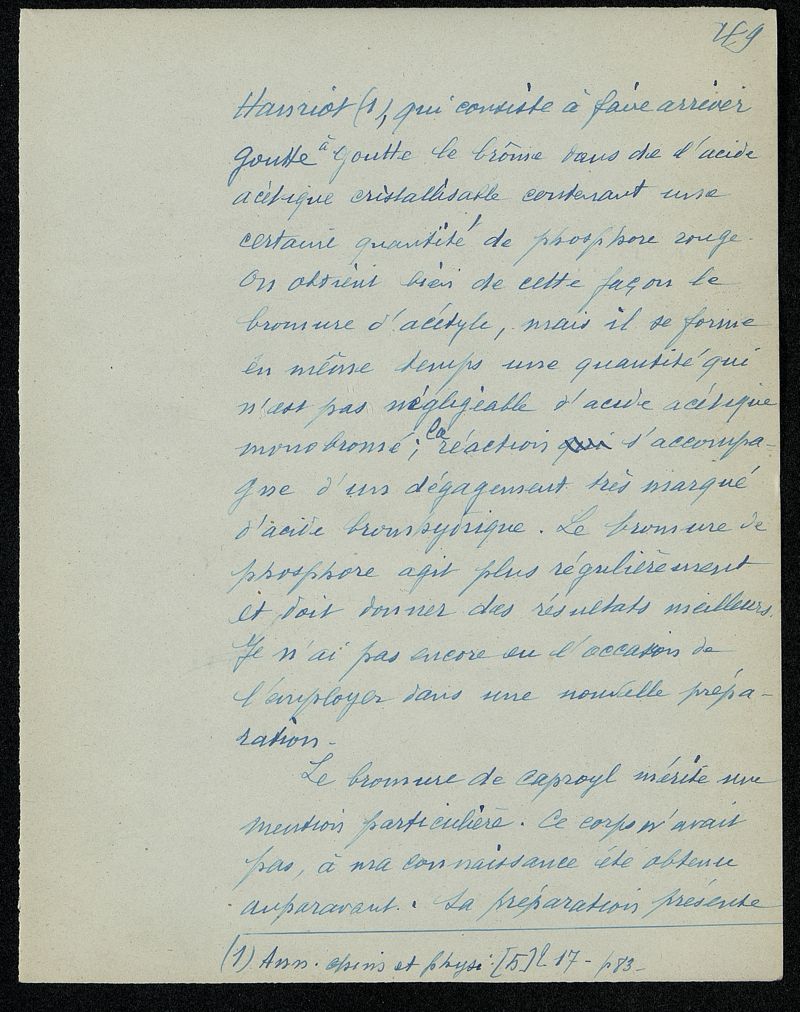 49
Hanriot (1), qui consiste à faire arriver
goutte à goutte le brôme dans de l'acide
acétique cristallisable contenant une
certaine quantité de phosphore rouge.
On obtient bien de cette façon le
bromure d'acétyle, mais il se forme
en même temps une quantité qui
n'est pas négligeable d'acide acétique
monobromé ; la réaction qui s'accompa-
gne d'un dégagement très marqué
d'acide bromhydrique. Le bromure de
phosphore agit plus régulièrement
et doit donner des résultats meilleurs.
Je n'ai pas encore eu l'occasion de
l'employer dans une nouvelle prépa-
ration.
Le bromure de caproyl mérite une
mention particulière. Ce corps n'avait
pas, à ma connaissance été obtenu
auparavant. Sa préparation présente
(1) Ann. chim et phys. [5] t 17 - p 83 -